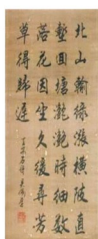 北山輸綠漲橫陂直
塹回塘灩灩時細數
落花因坐久緩尋芳
草得歸遲